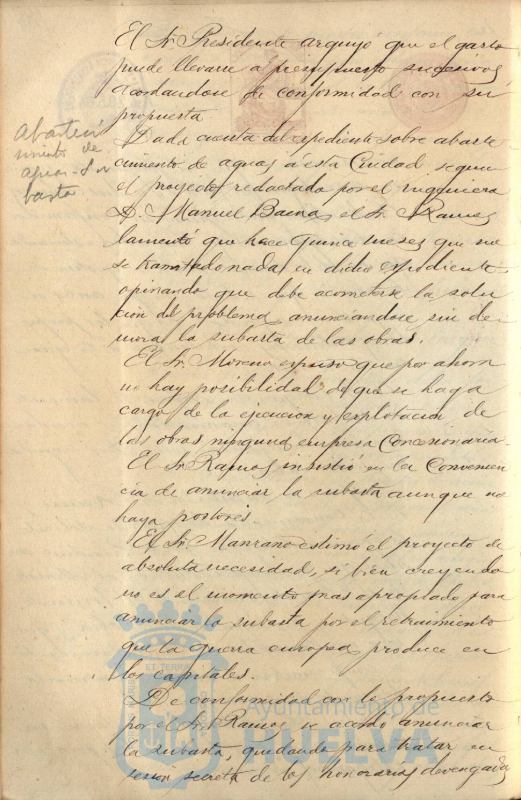 El Sr. Presidente arguyó que el gasto
puede llevarse a presupuestos sucesivos
acordandose de conformidad con su
propuesta.
Abasteci
miento de
aguas - Su
basta
Dada cuenta del expediente sobre abaste
cimiento de aguas á esta Ciudad segun
el proyecto redactado por el ingeniero
D. Manuel Baena, el Sr. Ramos
lamentó que hace quince meses que no
se tramitado nada en dicho expediente
opinando que debe acometerse la solu
ción del problema anunciandose sin de
mora la subasta de las obras.
El Sr. Moreno expuso que por ahora
no hay posibilidad de que se haga
cargo de la ejecucion y explotacion de
las obras ninguna empresa Concesionaria.
El Sr. Ramos insistió en la Convenien
cia de anunciar la subasta aunque no
haya postores.
El Sr. Manzano estimó el proyecto de
absoluta necesidad, si bien creyendo
no es el momento mas apropiado para
anunciar la subasta por el retraimiento
que la guerra europea produce en
los capitales.
De conformidad con lo propuesto
por el Sr. Ramos se acordó anunciar
la subasta, quedando para tratar en
sesión secreta de los honorarios devengados
Ayuntamiento de
HUELVA